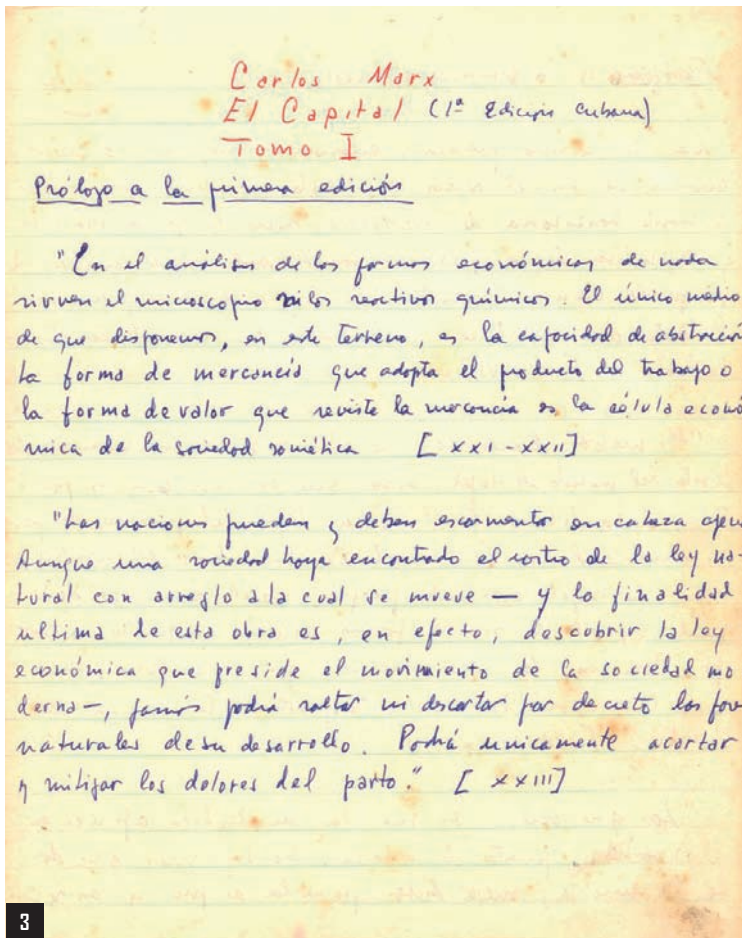 Carlos Marx
El Capital (1ª Edición Cubana)
Tomo I
Prólogo a la primera edición
"En el análisis de las formas económicas de nada
sirven el microscopio ni los reactivos químicos. El único medio
de que disponemos, en este terreno, es la capacidad de abstracción
La forma de mercancía que adopta el producto del trabajo o
la forma de valor que reviste la mercancía es la célula econó
mica de la sociedad soviética [XXI-XXII]
"Las naciones pueden y deben escarmentar en cabeza ajen
Aunque una sociedad haya encontrado el rastro de la ley na-
tural con arreglo a la cual se mueve — y la finalidad
ultima de esta obra es, en efecto, descubrir la ley
económica que preside el movimiento de la sociedad mo
derna—, jamás podrá saltar ni descartar por decreto las fas
naturales de su desarrollo. Podrá unicamente acortar
y mitigar los dolores del parto." [XXIII]
3